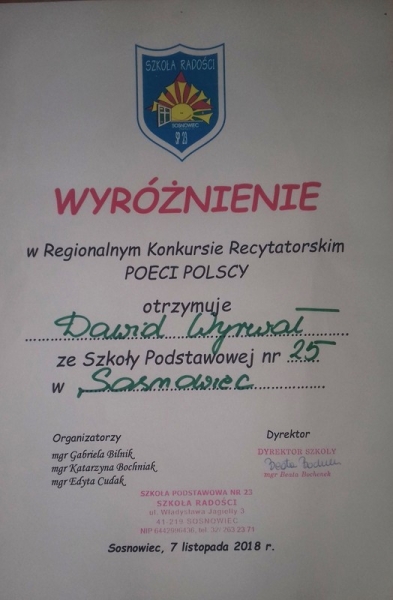 SZKOŁA RADOŚCI
SOSNOWIEC
SP 23
WYRÓŻNIENIE
w Regionalnym Konkursie Recytatorskim
POECI POLSCY
otrzymuje
Dawid Wyrwał
ze Szkoły Podstawowej nr 25
w Sosnowiec
Organizatorzy
mgr Gabriela Bilnik
mgr Katarzyna Bochniak
mgr Edyta Cudak
Dyrektor
DYREKTOR SZKOŁY
mgr Beata
SZKOŁA PODSTAWOWA NR 23
SZKOŁA RADOŚCI
ul. Władysława Jagiełły 3
41-219 SOSNOWIEC
tel. 32/ 263 23 71
Sosnowiec, 7 listopada 2018 r.